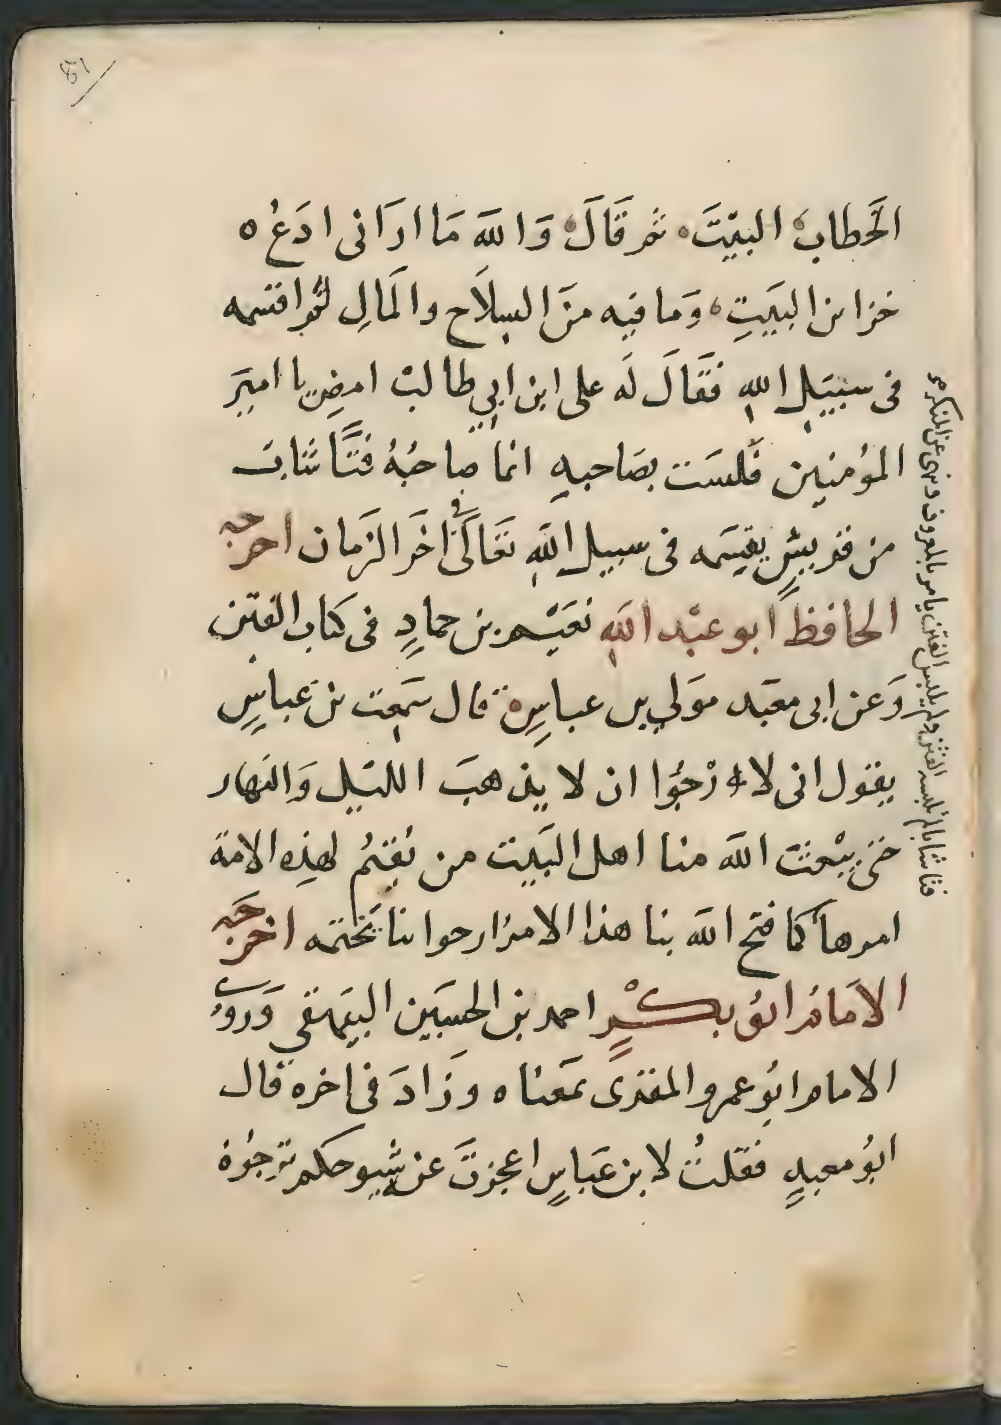 الخطاب البيت ثم قال والله ما ارانى ادع ه
خزاين البيت وما فيه من السلاح والمال لم اقتسمه
فى سبيل الله فقال له على ابن ابي طالب امض يا امير
المؤمنين فلست بصاحبه انما صاحبه فتا شاب
من قريش يقسمه فى سبيل الله تعالى فى اخر الزمان اخرجه
الحافظ ابو عبد الله نعيم بن حماد فى كتاب الفتن
وعن ابى معبد مولي بن عباس قال سمعت بن عباس
يقول انى لا رجوا ان لا يذهب الليل والنهار
حتى يبعث الله منا اهل البيت من يقيم لهذه الامة
امرها كما فتح الله بنا هذا الامر ارجوا بنا يختمه اخرجه
الامام ابو بكر احمد بن الحسين البيهقي ورواه
الامام ابو عمرو المقرى بمعناه وزاد فى اخره قال
ابو معبد فقلت لابن عباس اعجزت عن شيوحكم ترجوه
فتا شابا لم تلبسه الفتن ولم يلبس الفتن يامر بالمعروف وينهى عن المنكر
51